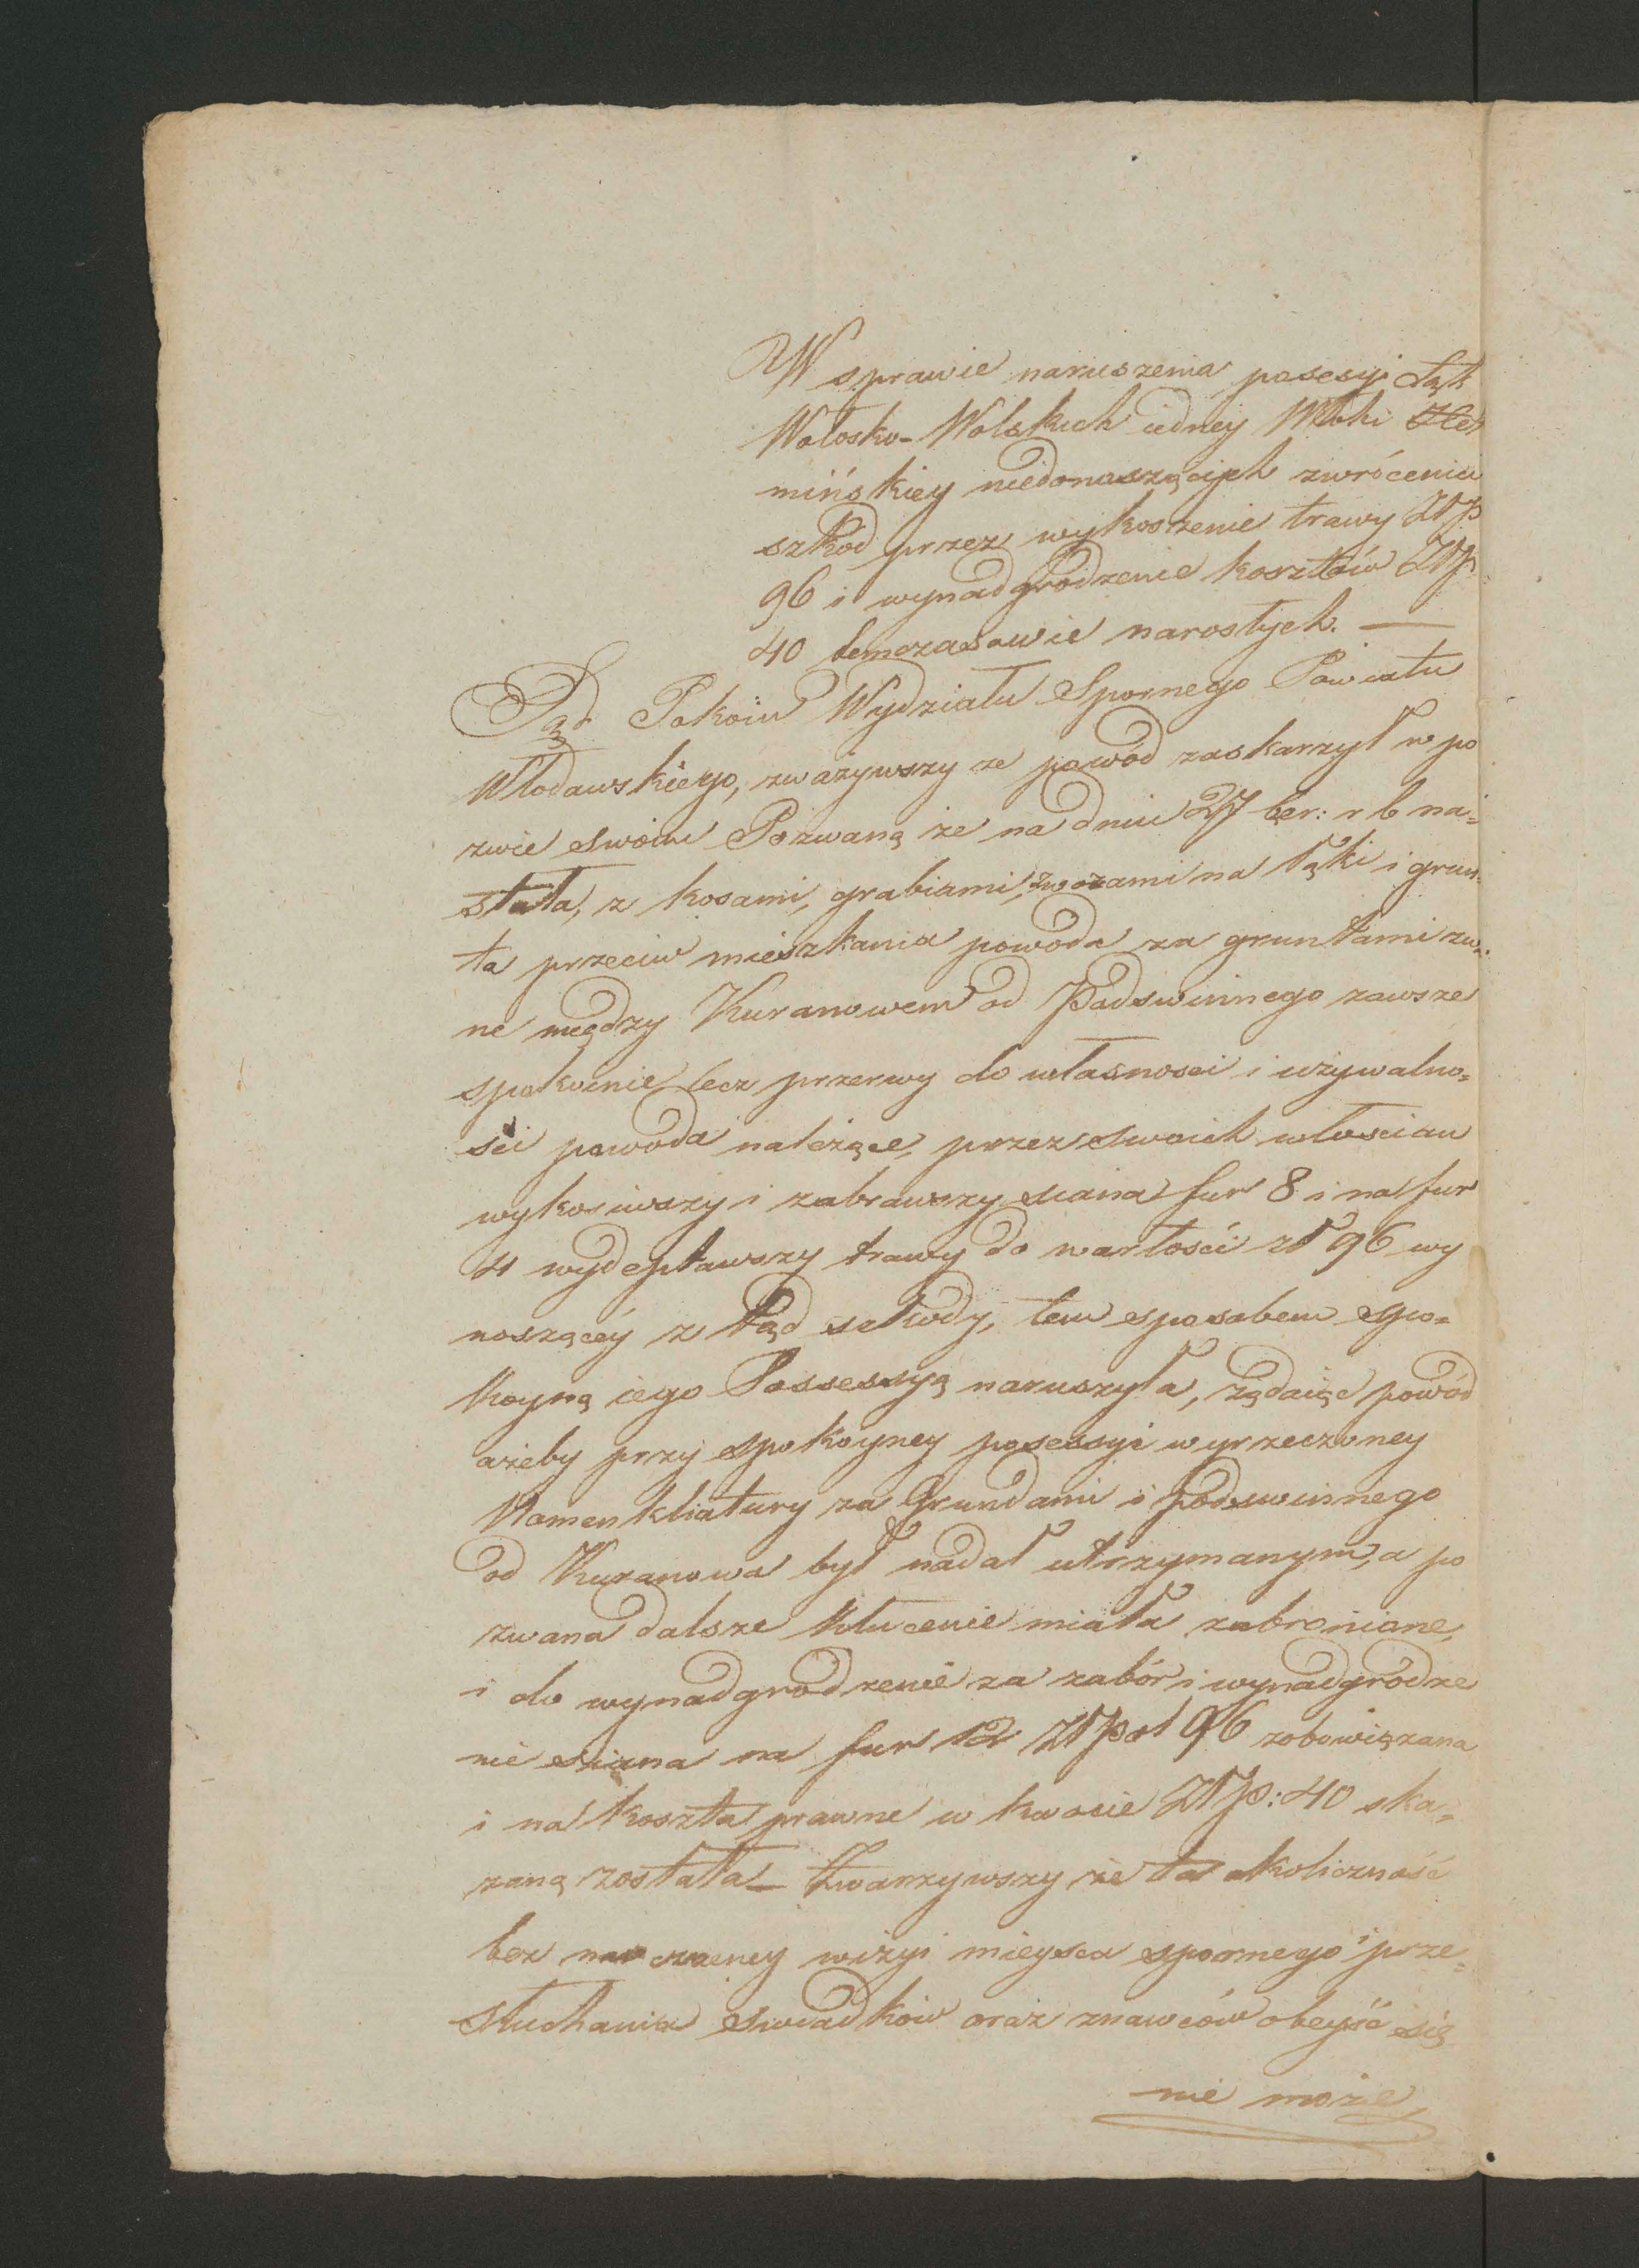 W sprawie naruszenia posesyi Łąk
Wołosko-Wolskich iedney Włoki
mińskiey niedonaszących zwrócenia
szkód przez wykoszenie trawy ZłP
96 i wynadgrodzenie kosztów ZłP.
40 temczasowie narostych. —
Sąd Pokoiu Wydziału Spornego Powiatu
Włodawskiego, zważywszy ze powód zaskarzył w po
zwie swoim Pozwaną że na dniu 27 r b na=
stała, z kosami, grabiami, wozami na łąki i grun=
ta przeciw mieszkania powoda za gruntami zwa=
ne między Kuranowem od Podswinnego zawsze
spokoinie lecz przerwy do własnosci i używalno=
sci powoda należące, przez swoich włoscian
wykosiwszy i zabrawszy siana fur 8 i na fur
4 wydeptawszy trawy do wartości zł 96 wy
noszącéy z tąd szkody, tem sposobem spo=
koyną iego Possessyą naruszyła, żądaiąc powód
ażeby przy spokoyney posessyi wyrzeczoney
Nomenkliatury za Grundami i podswinnego
od Kuranowa był nadal utrzymanym, a po
zwana dalsze kłucenie miała zabronione,
i do wynadgrodzenie za zabór i wynadgrodze
nie siana na fur 12 ZłPol 96 zobowiązana
i na koszta prawne w kwocie ZłP: 40 ska=
zaną została — Zwarzywszy że ta okoliczność
bez naoczney wizyi mieysca spornego i prze=
słuchania swiadków oraz znawców obeyść się
nie może,